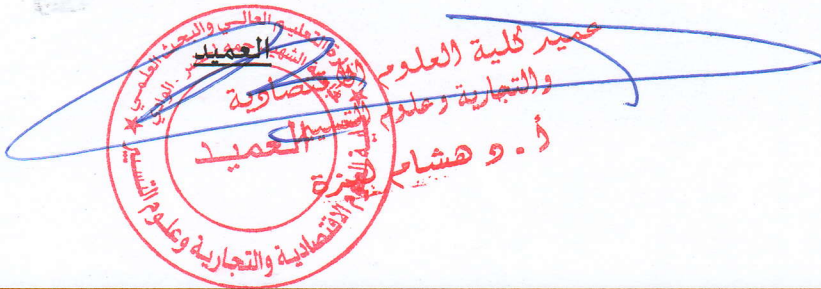 العميد
عميد كلية العلوم الاقتصادية
والتجارية وعلوم التسيير
أ. د هشام لعزة
وزارة التعليم العالي والبحث العلمي
الشهيد
العميد
كلية العلوم الاقتصادية والتجارية وعلوم التسيير